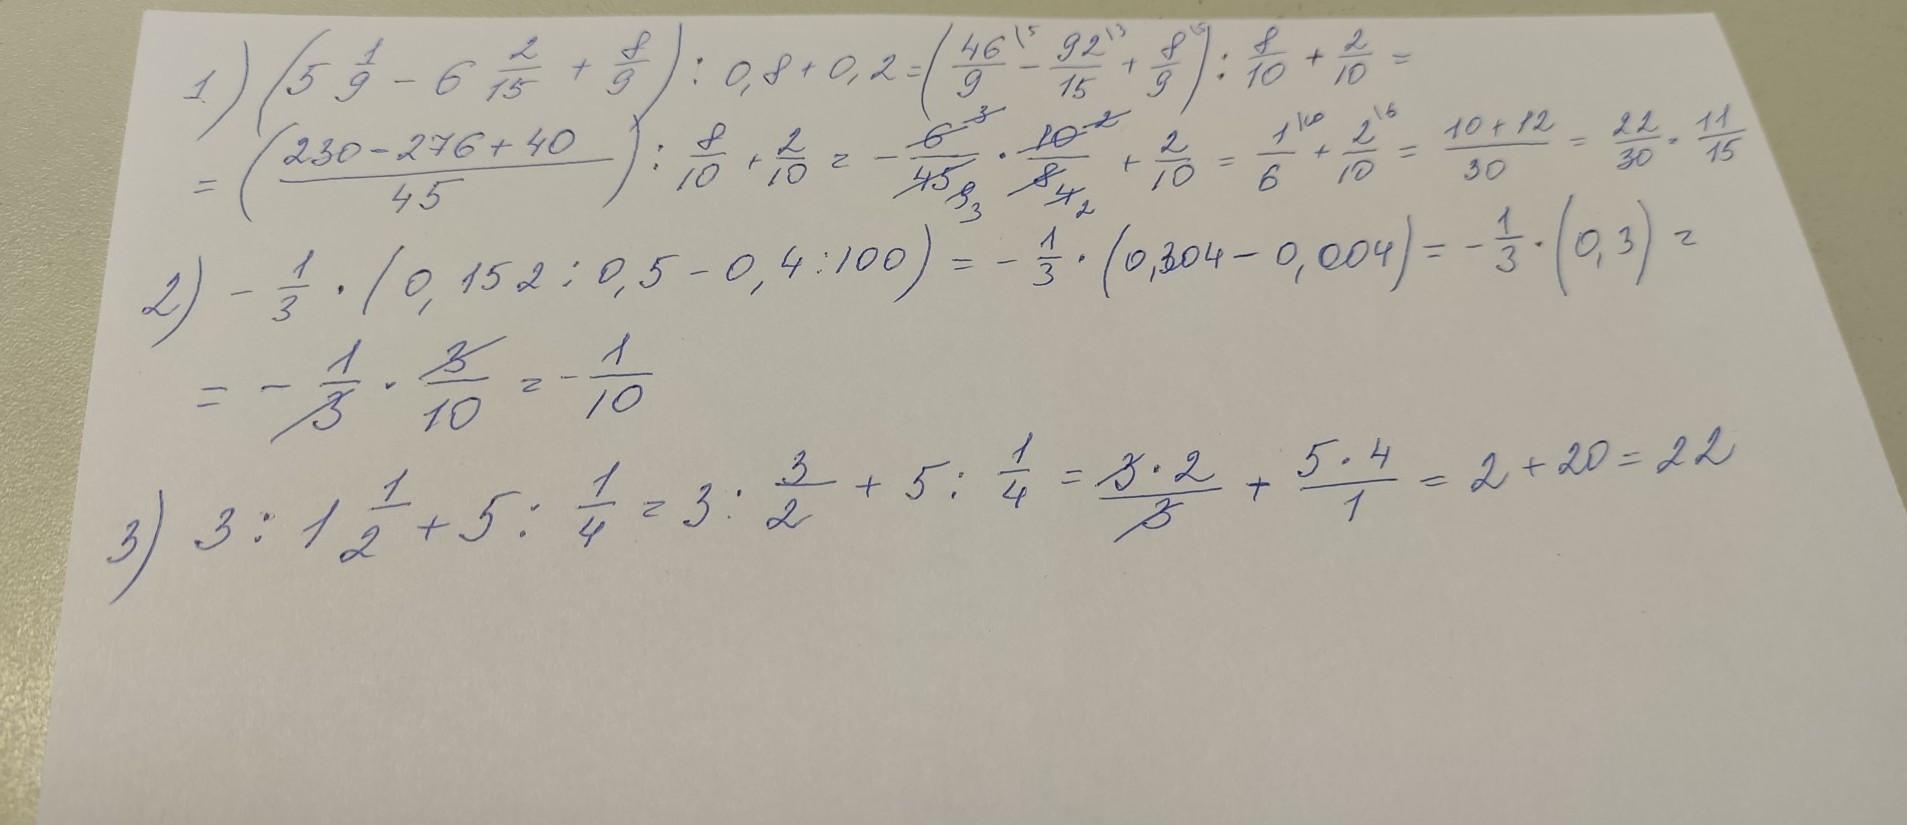 1) (5 1/9 - 6 2/15 + 8/9) : 0,8 + 0,2 = (46/9 \5 - 92/15 \3 + 8/9 \5) : 8/10 + 2/10 =
= ((230 - 276 + 40)/45) : 8/10 + 2/10 = - 6/45 · 10/8 + 2/10 = 1/6 \10 + 2/10 \6 = (10 + 12)/30 = 22/30 = 11/15
2) - 1/3 · (0,152 : 0,5 - 0,4 : 100) = - 1/3 · (0,304 - 0,004) = - 1/3 · (0,3) =
= - 1/3 · 3/10 = - 1/10
3) 3 : 1 1/2 + 5 : 1/4 = 3 : 3/2 + 5 : 1/4 = (3 · 2)/3 + (5 · 4)/1 = 2 + 20 = 22